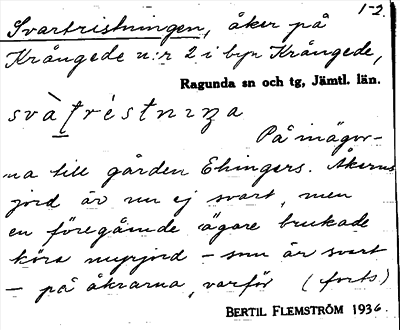 1-2.
Svartristningen, åker på
Krångede n:r 2 i byn Krångede,
Ragunda sn och tg, Jämtl. län.
På inägor-
na till gården Ehingers. Åkerns
jord är nu ej svart, men
en föregående ägare brukade
köra myrjord – som är svart
– på åkrarna, varför (forts)
BERTIL FLEMSTRÖM 1936.